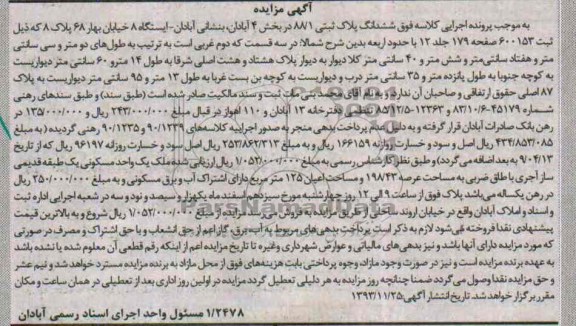 آگهی مزایده
به موجب پرونده اجرایی کلاسه فوق ششدانگ پلاک ثبتی ۸۸/۱ در بخش ۴ آبادان، بنشانی آبادان-ایستگاه ۸ خیابان بهار ۶۸ پلاک ۸ که ذیل
ثبت ۶۰۰۱۵۳ صفحه ۱۷۹ جلد ۱۳ با حدود اربعه بدین شرح شمالا: در سه قسمت که دوم غربی است به ترتیب به طول‌های دو متر و سی سانتی
متر و هفتاد سانتی‌متر و شش متر و ۴۰ سانتی متر کلا دیوار به دیوار پلاک هشتاد و هشت اصلی شرقا به طول ۱۴ مترو ۶۰ سانتی متر دیواریست
به کوچه جنوبا به طول پانزده متر و ۳۵ سانتی متر درب و دیواریست به کوچه بن بست غربا به طول ۱۳ متر و ۹۵ سانتی متر دیواریست به پلاک
۸۷ اصلی حقوق ارتفاقی و صاحبان آن ندارد بنام آقای ثبت و سند مالکیت صادر شده است (طبق سند) و طبق سندهای رهنی
شماره ۴۵۱۷۹-۸۳/۱۰/۶ و ۱۲۳۶۳-۸۵/۱۲/۵ تنظیمی دفترخانه ۱۳ آبادان و ۱۱۰ اهواز در قبال مبلغ ۲۴۳/۰۰۰/۰۰۰ ریال و ۱۳۵/۰۰۰/۰۰۰ در
رهن بانک صادرات آبادان قرار گرفته و به دلیل عدم پرداخت بدهی منجر به صدور اجراییه کلاسه‌های ۹۰/۱۲۳۹ و ۹۰/۱۲۳۵ رهنی گردیده (به مبلغ
۴۳۴/۸۵۳/۰۸۵ ریال اصل و سود و خسارت روزانه ۱۶۶۱۵۹ ریال و به مبلغ ۲۵۳/۸۶۲/۳۱۳ ریال اصل و سود و خسارت روزانه ۹۶۱۹۷ ریال که از تاریخ
۹۰/۴/۱۳ به بعد اضافه می گردد) و طبق نظر کارشناس رسمی به مبلغ ۱/۰۵۲/۰۰۰/۰۰۰ ریال ارزیابی شده ملک یک واحد مسکونی یک طبقه قدیمی
ساز آجری با طاق ضربی به مساحت عرصه ۱۹۸/۴۳ و مساحت اعیان ۱۲۵ متر مربع دارای اشتراک آب و برق مسکونی و به مبلغ ۳۵۰/۰۰۰/۰۰۰ ریال
در رهن یکساله می‌باشد پلاک فوق از ساعت ۹ الی ۱۲ روز چهارشنبه مورخ سیزدهم اسفند ماه یکهزار و سیصد و نود و سه در شعبه اجرایی اداره ثبت
و اسناد و املاک آبادان واقع در خیابان اروند ساحلی از طریق مزایده به فروش می‌رسد مزایده از مبلغ ۱/۰۵۲/۰۰۰/۰۰۰ ریال شروع و به بالاترین قیمت
پیشنهادی نقدا فروخته می‌شود لازم به ذکر است پرداخت بدهی‌های مربوط به آب، برق، گاز اعم از حق انشعاب و یا حق اشتراک و مصرف در صورتی
که مورد مزایده دارای آنها باشد و نیز بدهی‌های مالیاتی و عوارض شهرداری وغیره تا تاریخ مزایده اعم از اینکه رقم قطعی آن معلوم شده یا نشده باشد
به عهده برنده مزایده است و نیز در صورت وجود مازاد، وجوه پرداختی بابت هزینه‌های فوق از محل مازاد به برنده مزایده مسترد خواهد شد و نیم عشر
و حق مزایده نقدا وصول می گردد ضمنا چنانچه روز مزایده به هر دلیلی تعطیل گردد مزایده در اولین روز اداری بعد از تعطیلی در همان ساعت و مکان
مقرر برگزار خواهد شد. تاریخ انتشار آگهی: ۱۳۹۳/۱۱/۲۵
۱/۲۴۷۸ مسئول واحد اجرای اسناد رسمی آبادان